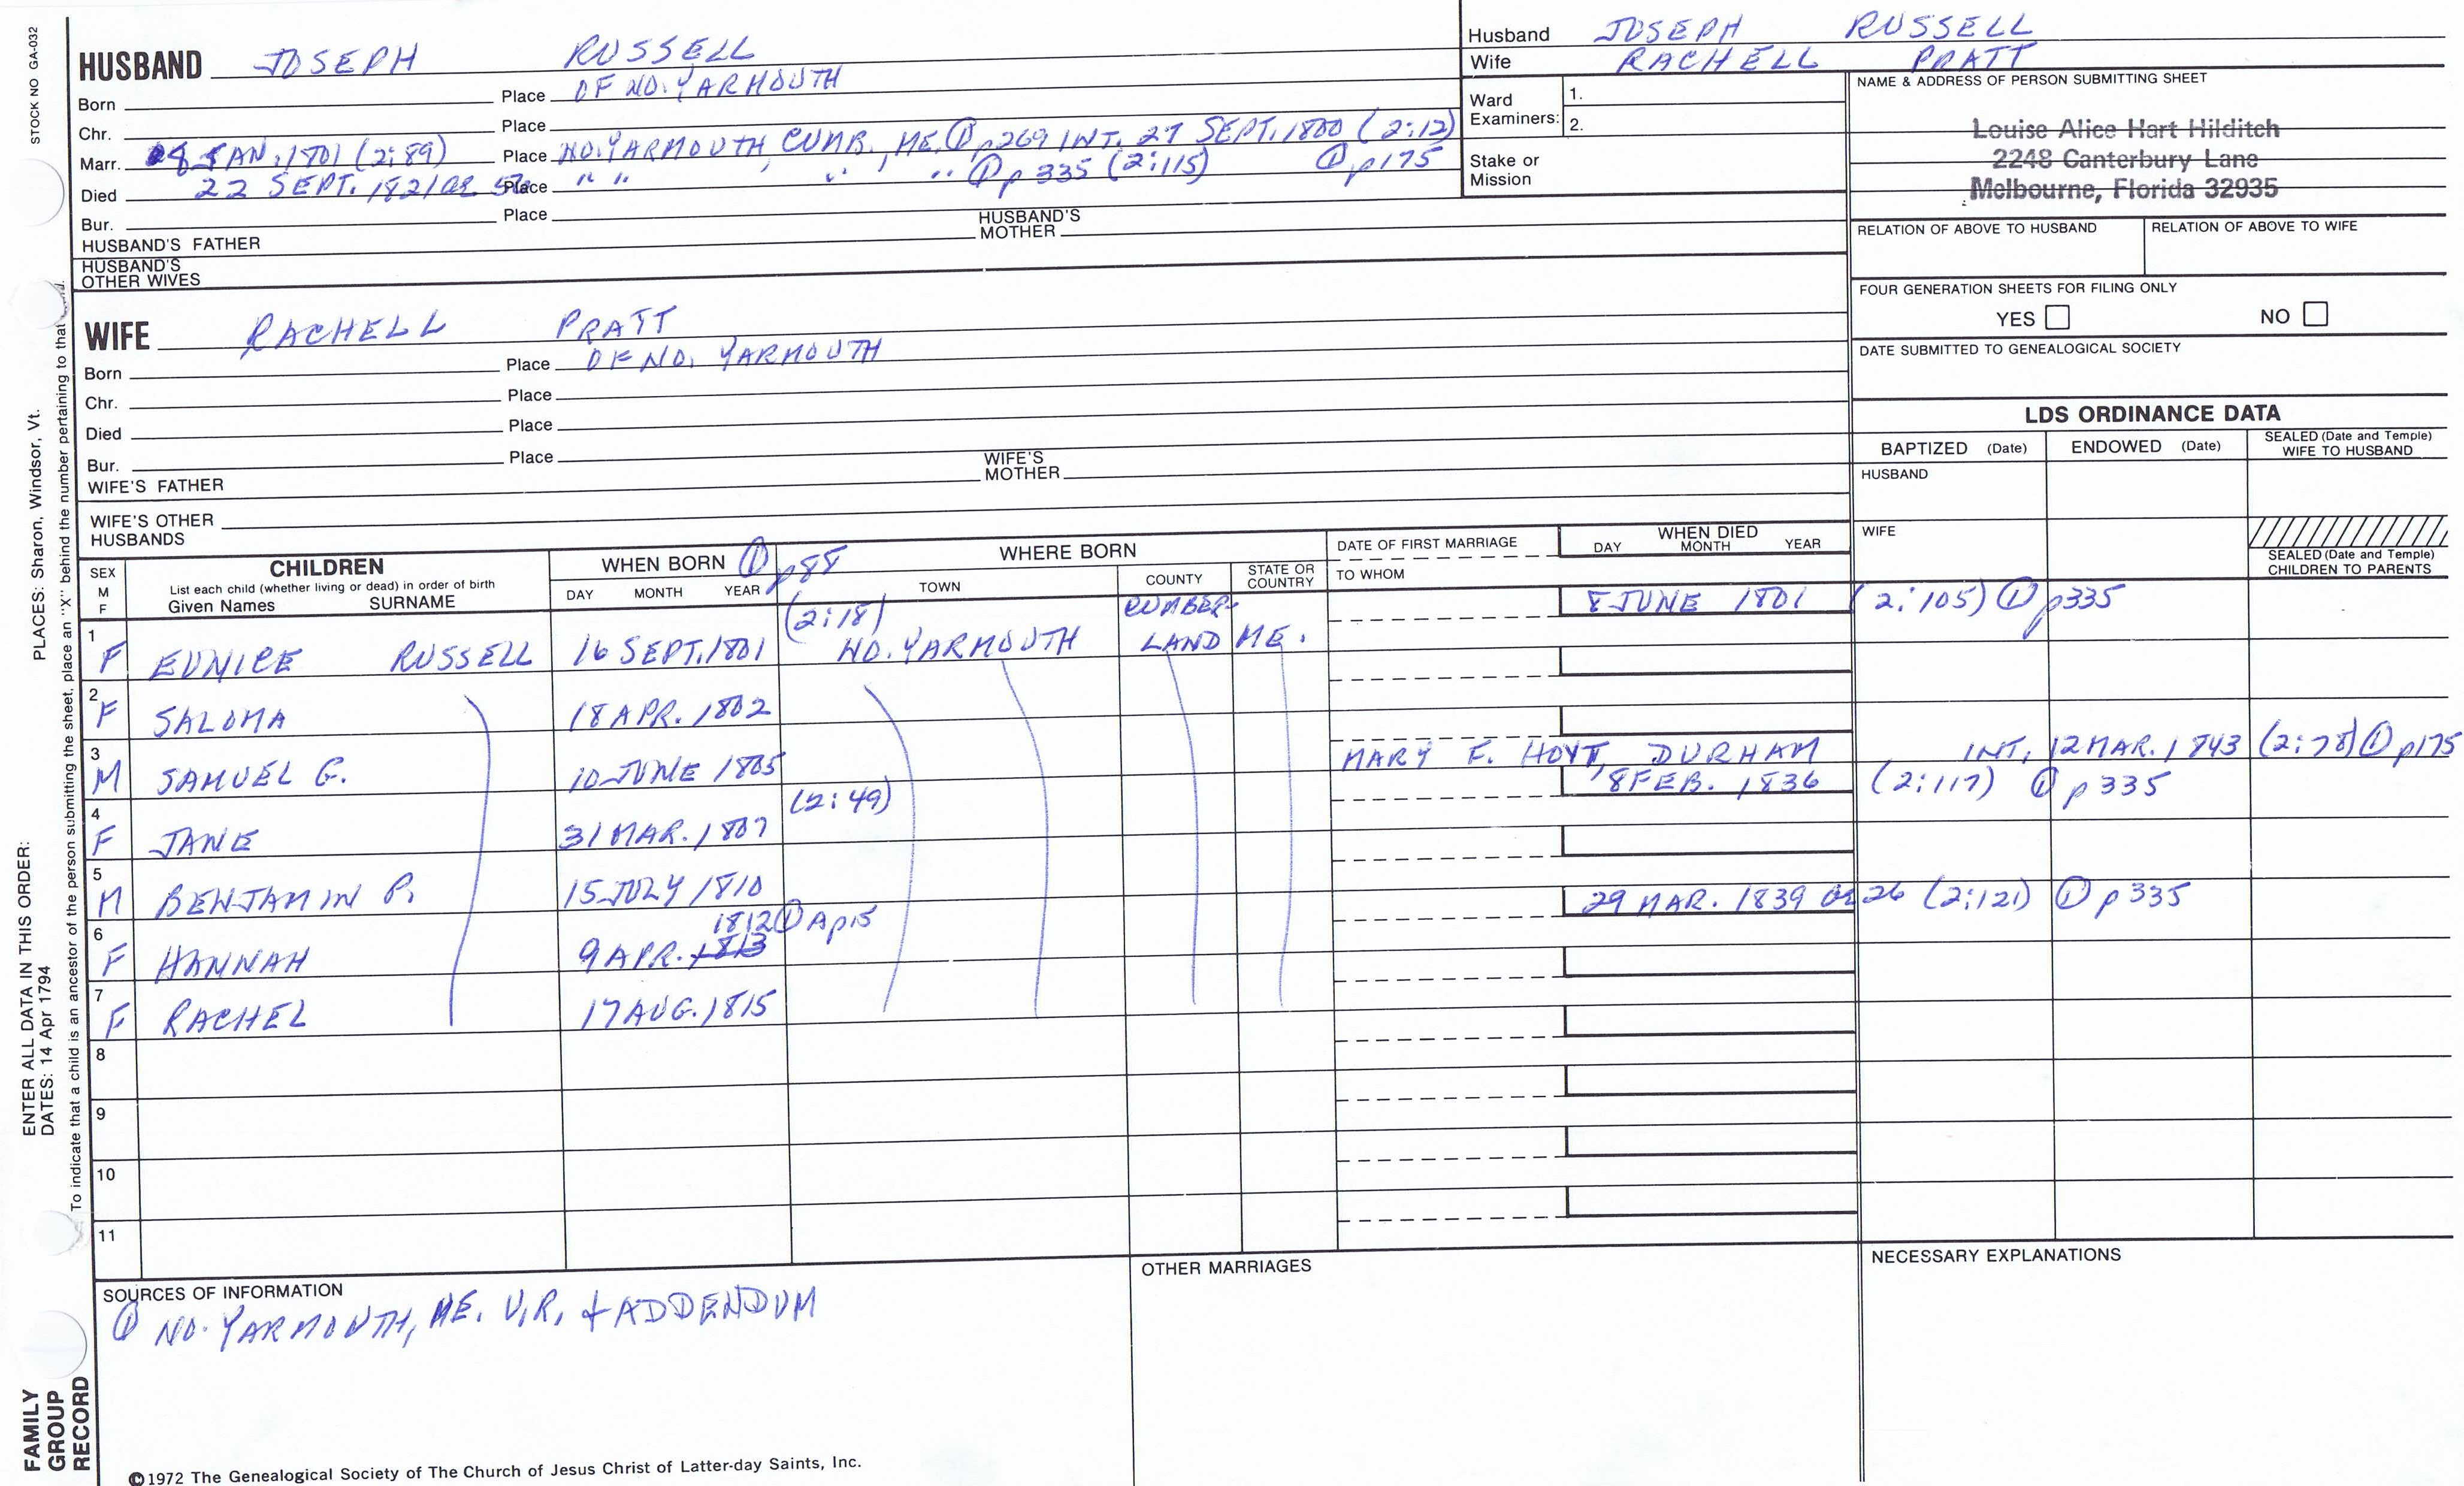 STOCK NO GA-032
HUSBAND JOSEPH RUSSELL
Born Place OF NO. YARMOUTH
Chr. Place
Marr. 8 JAN. 1801 (2:89) Place NO. YARMOUTH, CUMB., ME. ① p269 INT. 27 SEPT. 1800 (2:12)
Died 22 SEPT. 1821 Place " " " " ① p335 (2:115) ① p175
Bur. Place
HUSBAND'S FATHER HUSBAND'S MOTHER
HUSBAND'S OTHER WIVES
Husband JOSEPH RUSSELL
Wife RACHELL PRATT
Ward Examiners: 1.
2.
Stake or Mission
NAME & ADDRESS OF PERSON SUBMITTING SHEET
Louise Alice Hart Hilditch
2248 Canterbury Lane
Melbourne, Florida 32935
RELATION OF ABOVE TO HUSBAND RELATION OF ABOVE TO WIFE
FOUR GENERATION SHEETS FOR FILING ONLY
YES NO
DATE SUBMITTED TO GENEALOGICAL SOCIETY
WIFE RACHELL PRATT
Born Place OF NO. YARMOUTH
Chr. Place
Died Place
Bur. Place
WIFE'S FATHER WIFE'S MOTHER
WIFE'S OTHER HUSBANDS
LDS ORDINANCE DATA
BAPTIZED (Date) ENDOWED (Date) SEALED (Date and Temple) WIFE TO HUSBAND
HUSBAND
WIFE
SEALED (Date and Temple) CHILDREN TO PARENTS
SEX M F
CHILDREN
List each child (whether living or dead) in order of birth
Given Names SURNAME
WHEN BORN ① p88
DAY MONTH YEAR
WHERE BORN
TOWN COUNTY STATE OR COUNTRY
DATE OF FIRST MARRIAGE
TO WHOM
WHEN DIED
DAY MONTH YEAR
1 F EUNICE RUSSELL 16 SEPT. 1801 (2:18) NO. YARMOUTH CUMBERLAND ME. 8 JUNE 1801 (2:105) ① p335
2 F SALOMA 18 APR. 1802
3 M SAMUEL G. 10 JUNE 1805 MARY F. HOYT, DURHAM INT. 12 MAR. 1843 (2:78) ① p175
4 F JANE 31 MAR. 1807 (2:49) 8 FEB. 1836 (2:117) ① p335
5 M BENJAMIN P. 15 JULY 1810
6 F HANNAH 9 APR. 1813 1812 ① Ap15 29 MAR. 1839 OR 26 (2:121) ① p335
7 F RACHEL 17 AUG. 1815
8
9
10
11
SOURCES OF INFORMATION
① NO. YARMOUTH, ME. V.R. + ADDENDUM
OTHER MARRIAGES
NECESSARY EXPLANATIONS
©1972 The Genealogical Society of The Church of Jesus Christ of Latter-day Saints, Inc.
FAMILY GROUP RECORD
ENTER ALL DATA IN THIS ORDER:
DATES: 14 Apr 1794
PLACES: Sharon, Windsor, Vt.
To indicate that a child is an ancestor of the person submitting the sheet, place an "X" behind the number pertaining to that